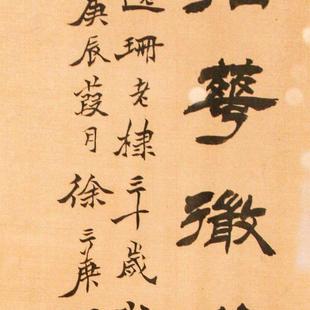 華徵
逸珊老棣三十歲
庚辰葭月徐三庚